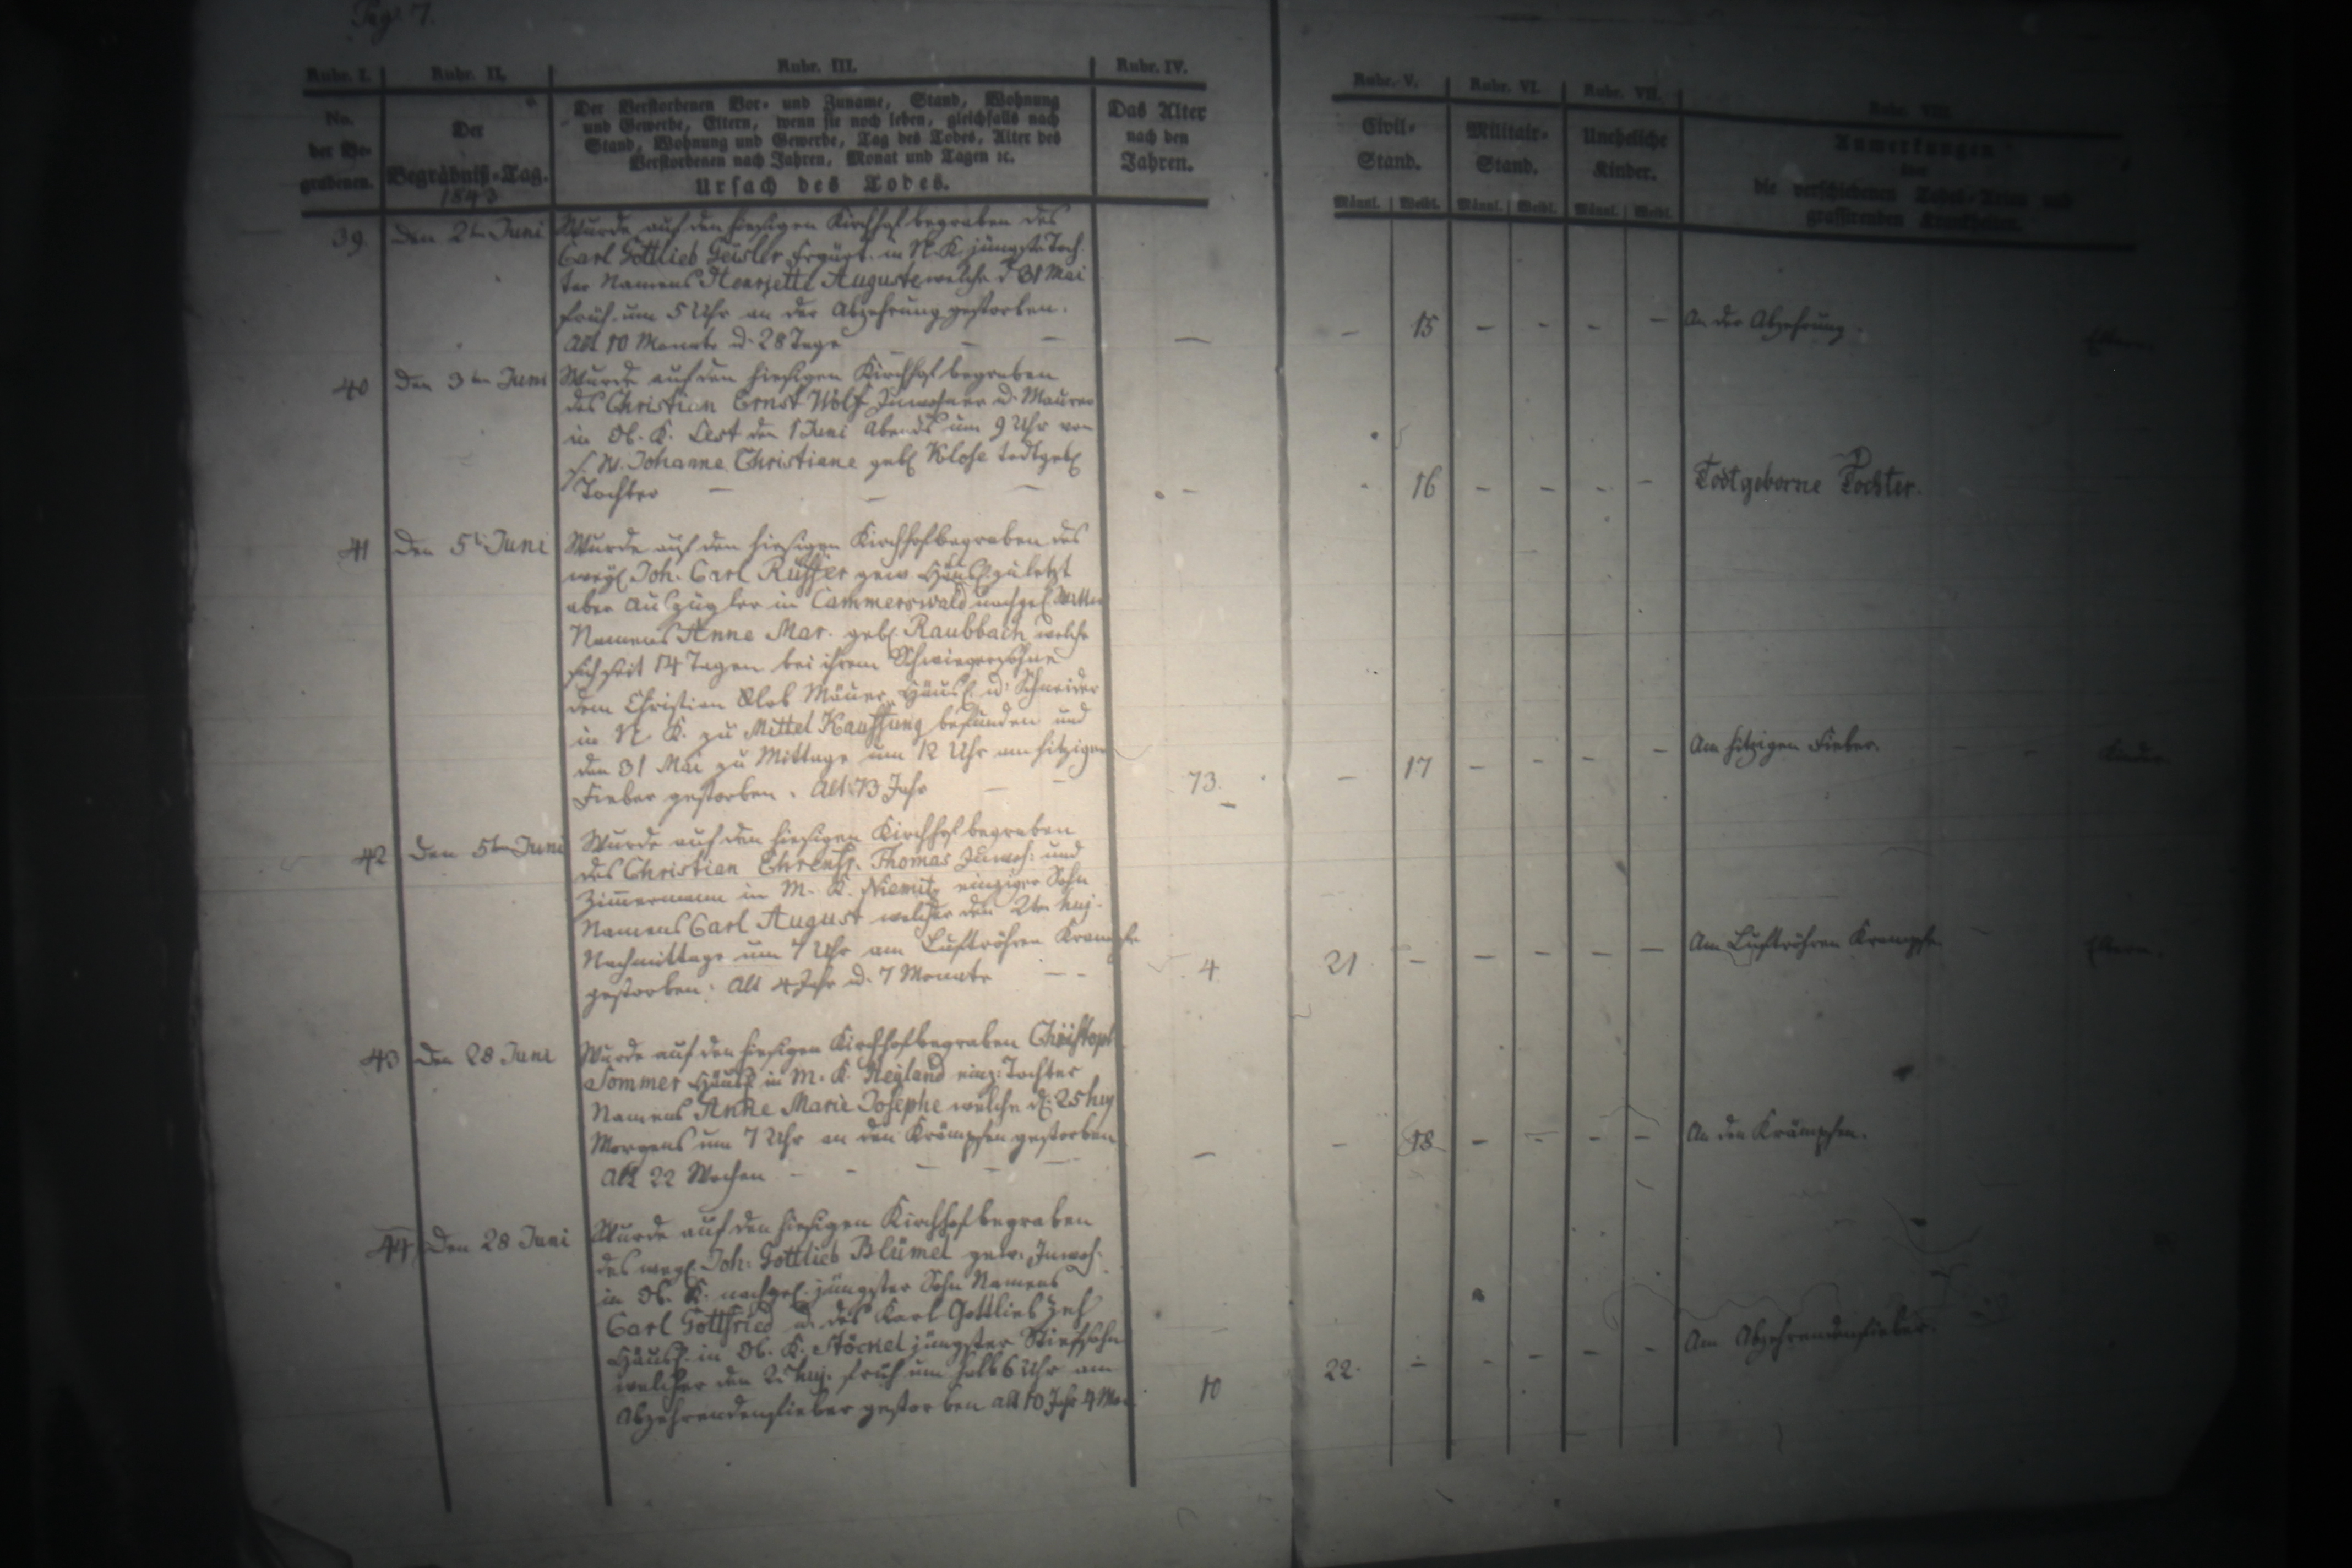 Pag. 7.
Rubr. I. Rubr. II. Rubr. III. Rubr. IV. Rubr. V. Rubr. VI. Rubr. VII. Rubr. VIII.
No. der Be-grabenen.
Der Begräbniß-Tag.
1843
Der Verstorbenen Vor- und Zuname, Stand, Wohnung
und Gewerbe, Eltern, wenn sie noch leben, gleichfalls nach
Stand, Wohnung und Gewerbe, Tag des Todes, Alter des
Verstorbenen nach Jahren, Monat und Tagen ꝛc.
Ursach des Todes.
Das Alter
nach den
Jahren.
Civil-Stand.
Militair-Stand.
Uneheliche Kinder.
Männl. Weibl. Männl. Weibl. Männl. Weibl.
Anmerkungen
die verschiedenen Todes-Arten und
grassirenden Krankheiten.
39 Den 2ten Juni
Wurde auf den hiesigen Kirchhof begraben des
Carl Gottlieb Geisler in N. K. jüngste Toch
ter Namens Henrjette Auguste welche d 31 Mai
früh um 5 Uhr an der Abzehrung gestorben.
Alt 10 Monate u. 28 Tage
— — 15 — — — — An der Abzehrung. Eltern.
40 Den 3ten Juni
Wurde auf den hiesigen Kirchhof begraben
des Christian Ernst Wolf Inwohner u. Maurer
in Ob. K. den 1 Juni Abends um 9 Uhr von
s. W. Johanne Christiane geb. Klose todtgeb
Tochter — — —
— 16 — — — — Todtgeborne Tochter.
41 Den 5t Juni
Wurde auf den hiesigen Kirchhof begraben des
weyl Joh. Carl Rüffer gew. Häusl. zuletzt
aber Auszügler in Cammerswald nachgel. Witwe
Namens Anne Mar. geb. Raubbach welche
sich seit 14 Tagen bei ihrem Schwiegersohne
dem Christian Glob Mäuer Häusl. u. Schneider
in N. K. zu Mittel Kauffung befunden und
den 31 Mai zu Mittage um 12 Uhr am hitzigen
Fieber gestorben. Alt 73 Jahr — —
73. — 17 — — — — Am hitzigen Fieber. — — Kinder
42 Den 5ten Juni
Wurde auf den hiesigen Kirchhof begraben
des Christian Ehrenfr. Thomas Inwoh: und
Zimmermann in M. K. Niemitz einziger Sohn
Namens Carl August welcher den 2ten huj.
Nachmittags um 7 Uhr am Luftröhren Krampfe
gestorben: Alt 4 Jahr u. 7 Monate — -
4 21 — — — — — Am Luftröhren Krampfe. Eltern.
43 Den 28 Juni
Wurde auf den hiesigen Kirchhof begraben Christoph
Sommer Häusl. in M. K. Heyland einz: Tochter
Namens Anne Marie Josephe welche d. 25 huj
Morgens um 7 Uhr an den Krämpfen gestorben
Alt 22 Wochen — - — — —
— — 18 — — — — An den Krämpfen.
44 Den 28 Juni
Wurde auf den hiesigen Kirchhof begraben
des weyl. Joh: Gottlieb Blümel gew. Inwoh.
in Ob. K. nachgel. jüngster Sohn Namens
Carl Gottfried u. des Karl Gottlieb
Häusl. in Ob. K. Stöckel jüngster Stiefsohn
welcher den huj. früh um halb 6 Uhr am
Abzehrendenfieber gestorben alt 10 Jahr 4 Mo.
10 22. — — — — — Am Abzehrendenfieber.